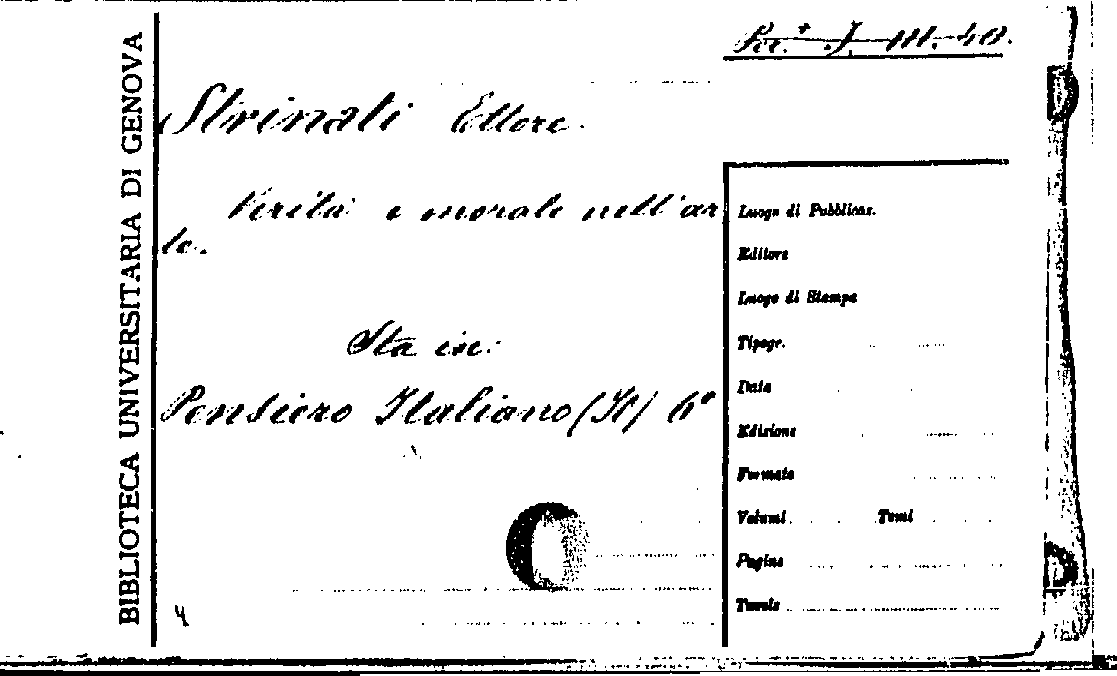 BIBLIOTECA UNIVERSITARIA DI GENOVA
Per.ª J. III. 40.
Strinati Ettore.
Verità e morale nell'ar
te.
Sta in:
Pensiero Italiano (Il) 6°
4
Luogo di Pubblicaz.
Editore
Luogo di Stampa
Tipogr.
Data
Edizione
Formato
Volumi Tomi
Pagine
Tavole